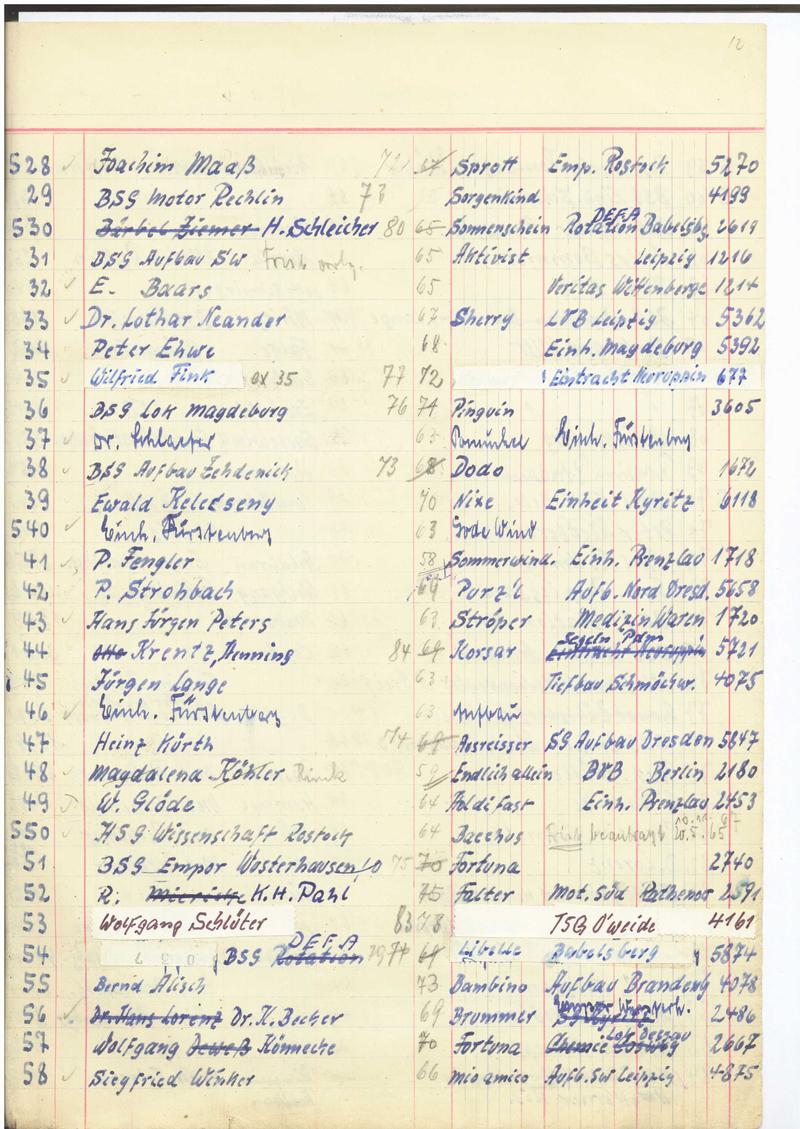 12
528 Joachim Maaß 72 67 Sprott Emp. Rostock 5270
29 BSG Motor Rechlin 73 Sorgenkind 4199
530 Bärbel Ziemer H. Schleicher 80 65 Sonnenschein Rotation DEFA Babelsbg. 2619
31 BSG Aufbau SW 65 Aktivist Leipzig 1216
32 E. Baars 65 Veritas Wittenberge 1214
33 Dr. Lothar Neander 67 Sherry LVB Leipzig 5362
34 Peter Ehwe 68 Einh. Magdeburg 5392
35 Wilfried Fink ex 35 77 72 Eintracht Neruppin 677
36 BSG Lok Magdeburg 76 74 Pinguin 3605
37 Dr. Schlaefer 63 Einh. Fürstenberg
38 BSG Aufbau Zehdenick 73 68 Dodo 1672
39 Ewald 70 Nixe Einheit Kyritz 6118
540 Einh. Fürstenberg 63 Gode Wind
41 P. Fengler 58 Sommerwind. Einh. Prenzlau 1718
42 P. Strohbach 64 Purz'l Aufb. Nord Dresd. 5658
43 Hans Jürgen Peters 63 Ströper Medizin Waren 1720
44 Otto Krentz, Henning 84 69 Korsar Segeln Pdm 5721
45 Jürgen Lange 63 Tiefbau Schmöckw. 4075
46 Einh. Fürstenberg 63 Aufbau
47 Heinz Kürth 74 69 Ausreisser SG Aufbau Dresden 5847
48 Magdalena Köhler Rinck 59 Endlich allein BVB Berlin 2180
49 W. Glöde 64 Poldi fast Einh. Prenzlau 2453
550 HSG Wissenschaft Rostock 64 Bacchus Frisk beantragt
51 BSG Empor Wosterhausen/D 75 70 Fortuna 2740
52 R. K.H. Pahl 75 Falter Mot. Süd Rathenow 2591
53 Wolfgang Schlüter 83 78 TSG O'weide 4161
54 BSG Rotation DEFA 69 Libelle Babelsberg 5874
55 Bernd Alisch 73 Bambino Aufbau Brandenbg 4078
56 Dr. Hans Lorenz Dr. K. Becher 69 Brummer 2486
57 Wolfgang Könnecke 70 Fortuna Chemie Coswig Lok Dessau 2667
58 Siegfried Winker 66 mio amico Aufb. SW Leipzig 4875